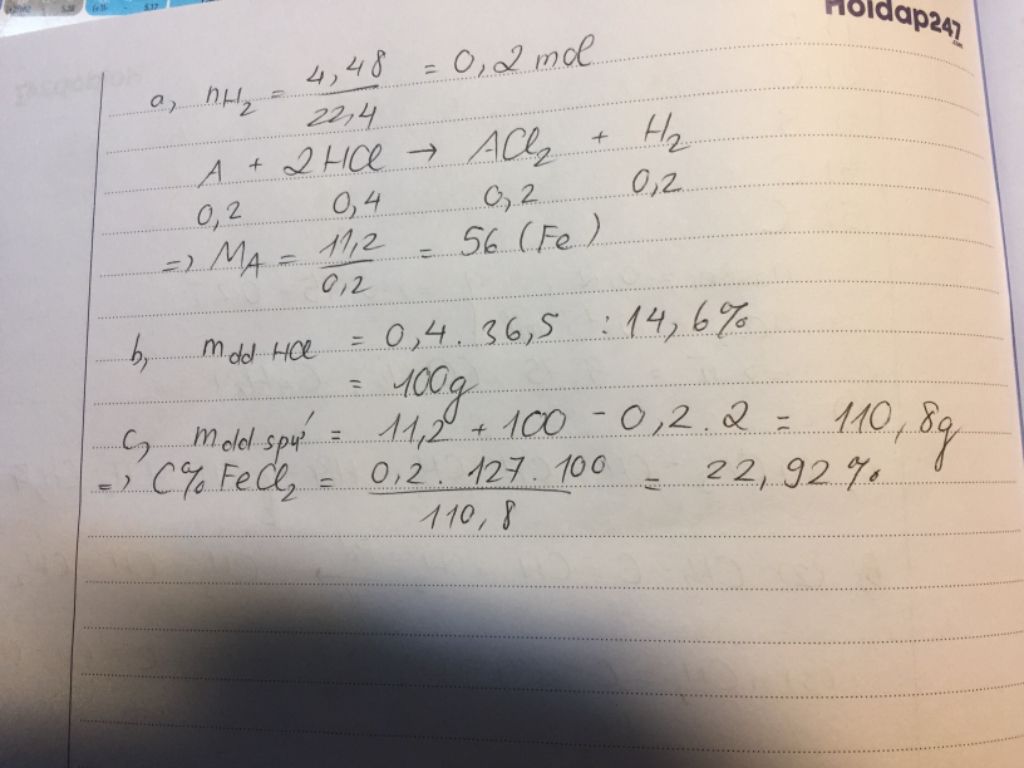 Hoidap247
.com
a, nH₂ = 4,48 / 22,4 = 0,2 mol
A + 2HCl → ACl₂ + H₂
0,2 0,4 0,2 0,2
=> MA = 11,2 / 0,2 = 56 (Fe)
b, mdd HCl = 0,4 . 36,5 : 14,6%
= 100g
c, mdd spứ = 11,2 + 100 - 0,2 . 2 = 110,8g
=> C% FeCl₂ = 0,2 . 127 . 100 / 110,8 = 22,92%